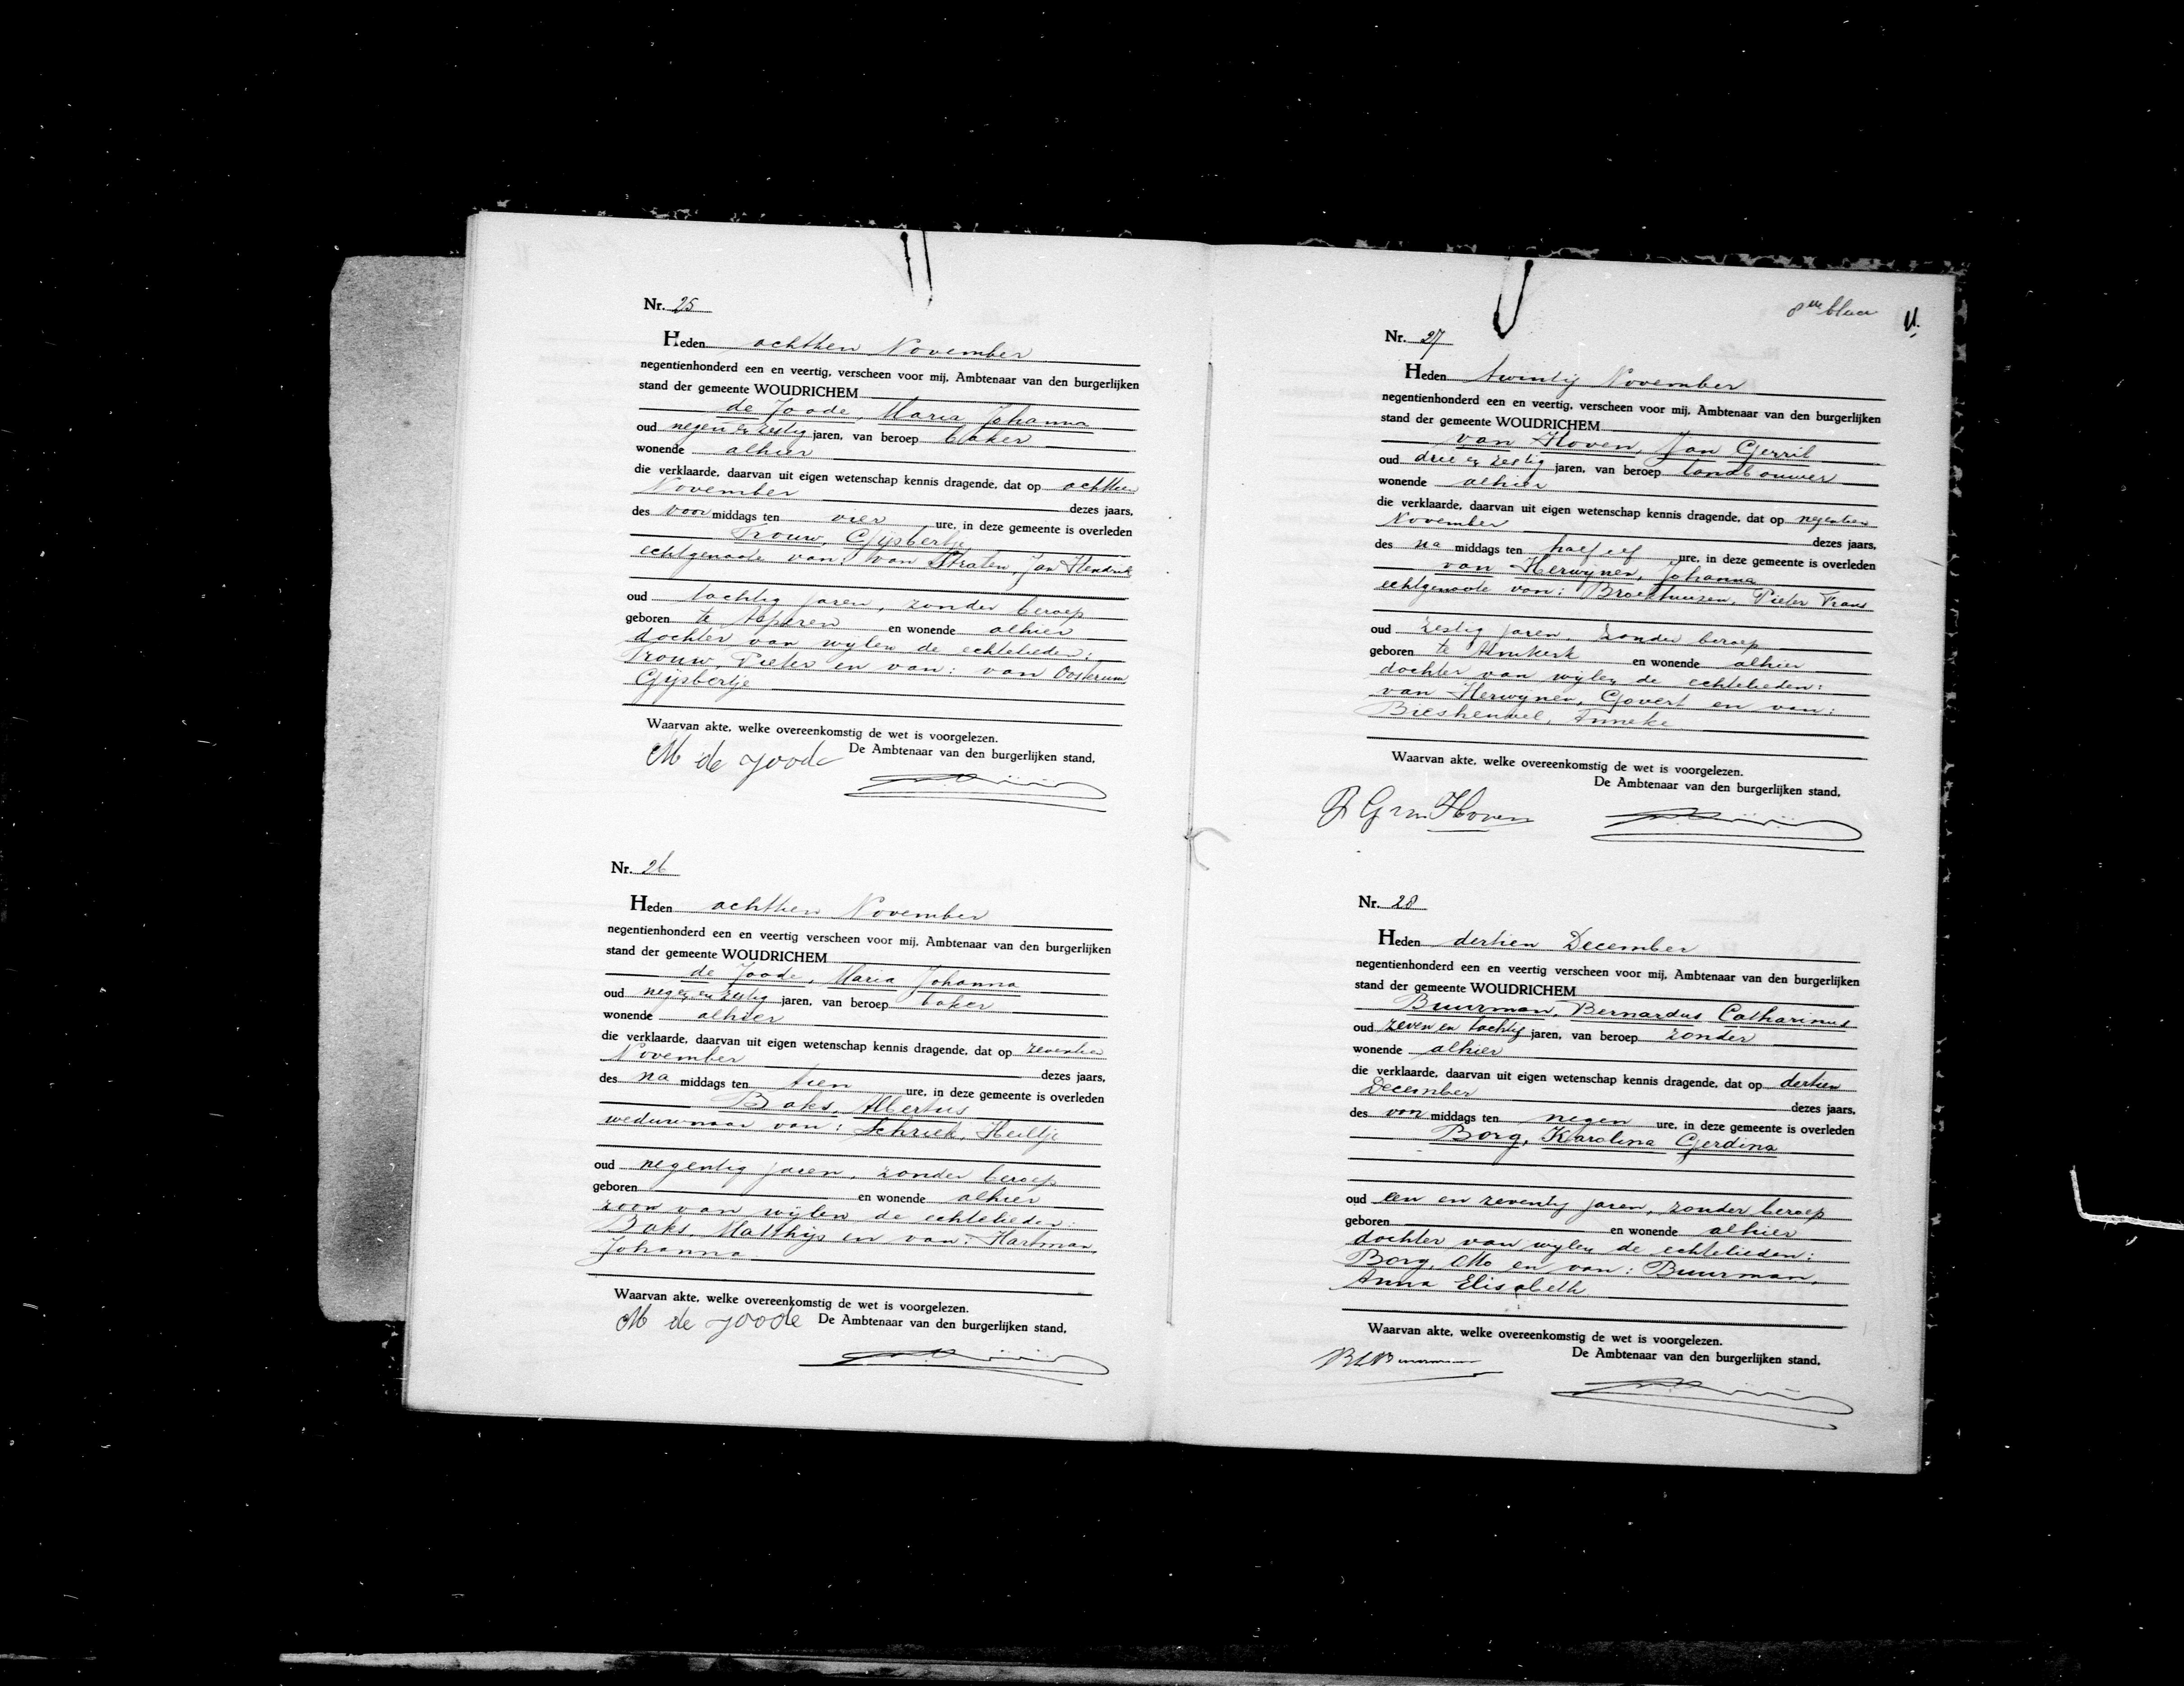 Nr. 25
Heden achttien November
negentienhonderd een en veertig, verscheen voor mij, Ambtenaar van den burgerlijken
stand der gemeente WOUDRICHEM
de Joode, Maria Johanna
oud negen en zestig jaren, van beroep baker
wonende alhier
die verklaarde, daarvan uit eigen wetenschap kennis dragende, dat op achttien
November dezes jaars,
des voor middags ten vier ure, in deze gemeente is overleden
Trouw, Gijsbertje
echtgenoote van: van Straten, Jan Hendrik
oud tachtig jaren, zonder beroep
geboren te Asperen en wonende alhier
dochter van wylen de echtelieden:
Trouw, Pieter en van: van Oosterum
Gijsbertje
Waarvan akte, welke overeenkomstig de wet is voorgelezen.
De Ambtenaar van den burgerlijken stand,
M de Joode
Nr. 26
Heden achttien November
negentienhonderd een en veertig verscheen voor mij, Ambtenaar van den burgerlijken
stand der gemeente WOUDRICHEM
de Joode, Maria Johanna
oud negen en zestig jaren, van beroep baker
wonende alhier
die verklaarde, daarvan uit eigen wetenschap kennis dragende, dat op zeventien
November dezes jaars,
des na middags ten tien ure, in deze gemeente is overleden
Baks, Albertus
weduwnaar van: Schriek, Heiltje
oud negentig jaren, zonder beroep
geboren en wonende alhier
zoon van wijlen de echtelieden:
Baks, Matthijs en van: Hartman,
Johanna
Waarvan akte, welke overeenkomstig de wet is voorgelezen.
M de Joode De Ambtenaar van den burgerlijken stand,
8ste blad
Nr. 27
Heden twintig November
negentienhonderd een en veertig, verscheen voor mij, Ambtenaar van den burgerlijken
stand der gemeente WOUDRICHEM
van Hoven, Jan Gerrit
oud drie en zestig jaren, van beroep landbouwer
wonende alhier
die verklaarde, daarvan uit eigen wetenschap kennis dragende, dat op negentien
November dezes jaars,
des na middags ten half elf ure, in deze gemeente is overleden
van Herwijnen, Johanna
echtgenoote van: Broekhuizen, Pieter Frans
oud zestig jaren, zonder beroep
geboren te Almkerk en wonende alhier
dochter van wijlen de echtelieden:
van Herwijnen, Govert en van:
Biesheuvel, Anneke
Waarvan akte, welke overeenkomstig de wet is voorgelezen.
De Ambtenaar van den burgerlijken stand,
J G van Hoven
Nr. 28
Heden dertien December
negentienhonderd een en veertig verscheen voor mij, Ambtenaar van den burgerlijken
stand der gemeente WOUDRICHEM
Buurman, Bernardus Catharinus
oud zeven en tachtig jaren, van beroep zonder
wonende alhier
die verklaarde, daarvan uit eigen wetenschap kennis dragende, dat op dertien
December dezes jaars,
des voor middags ten negen ure, in deze gemeente is overleden
Borg, Karolina Gerdina
oud een en zeventig jaren, zonder beroep
geboren en wonende alhier
dochter van wylen de echtelieden:
Borg, Otto en van: Buurman,
Anna Elisabeth
Waarvan akte, welke overeenkomstig de wet is voorgelezen.
De Ambtenaar van den burgerlijken stand,